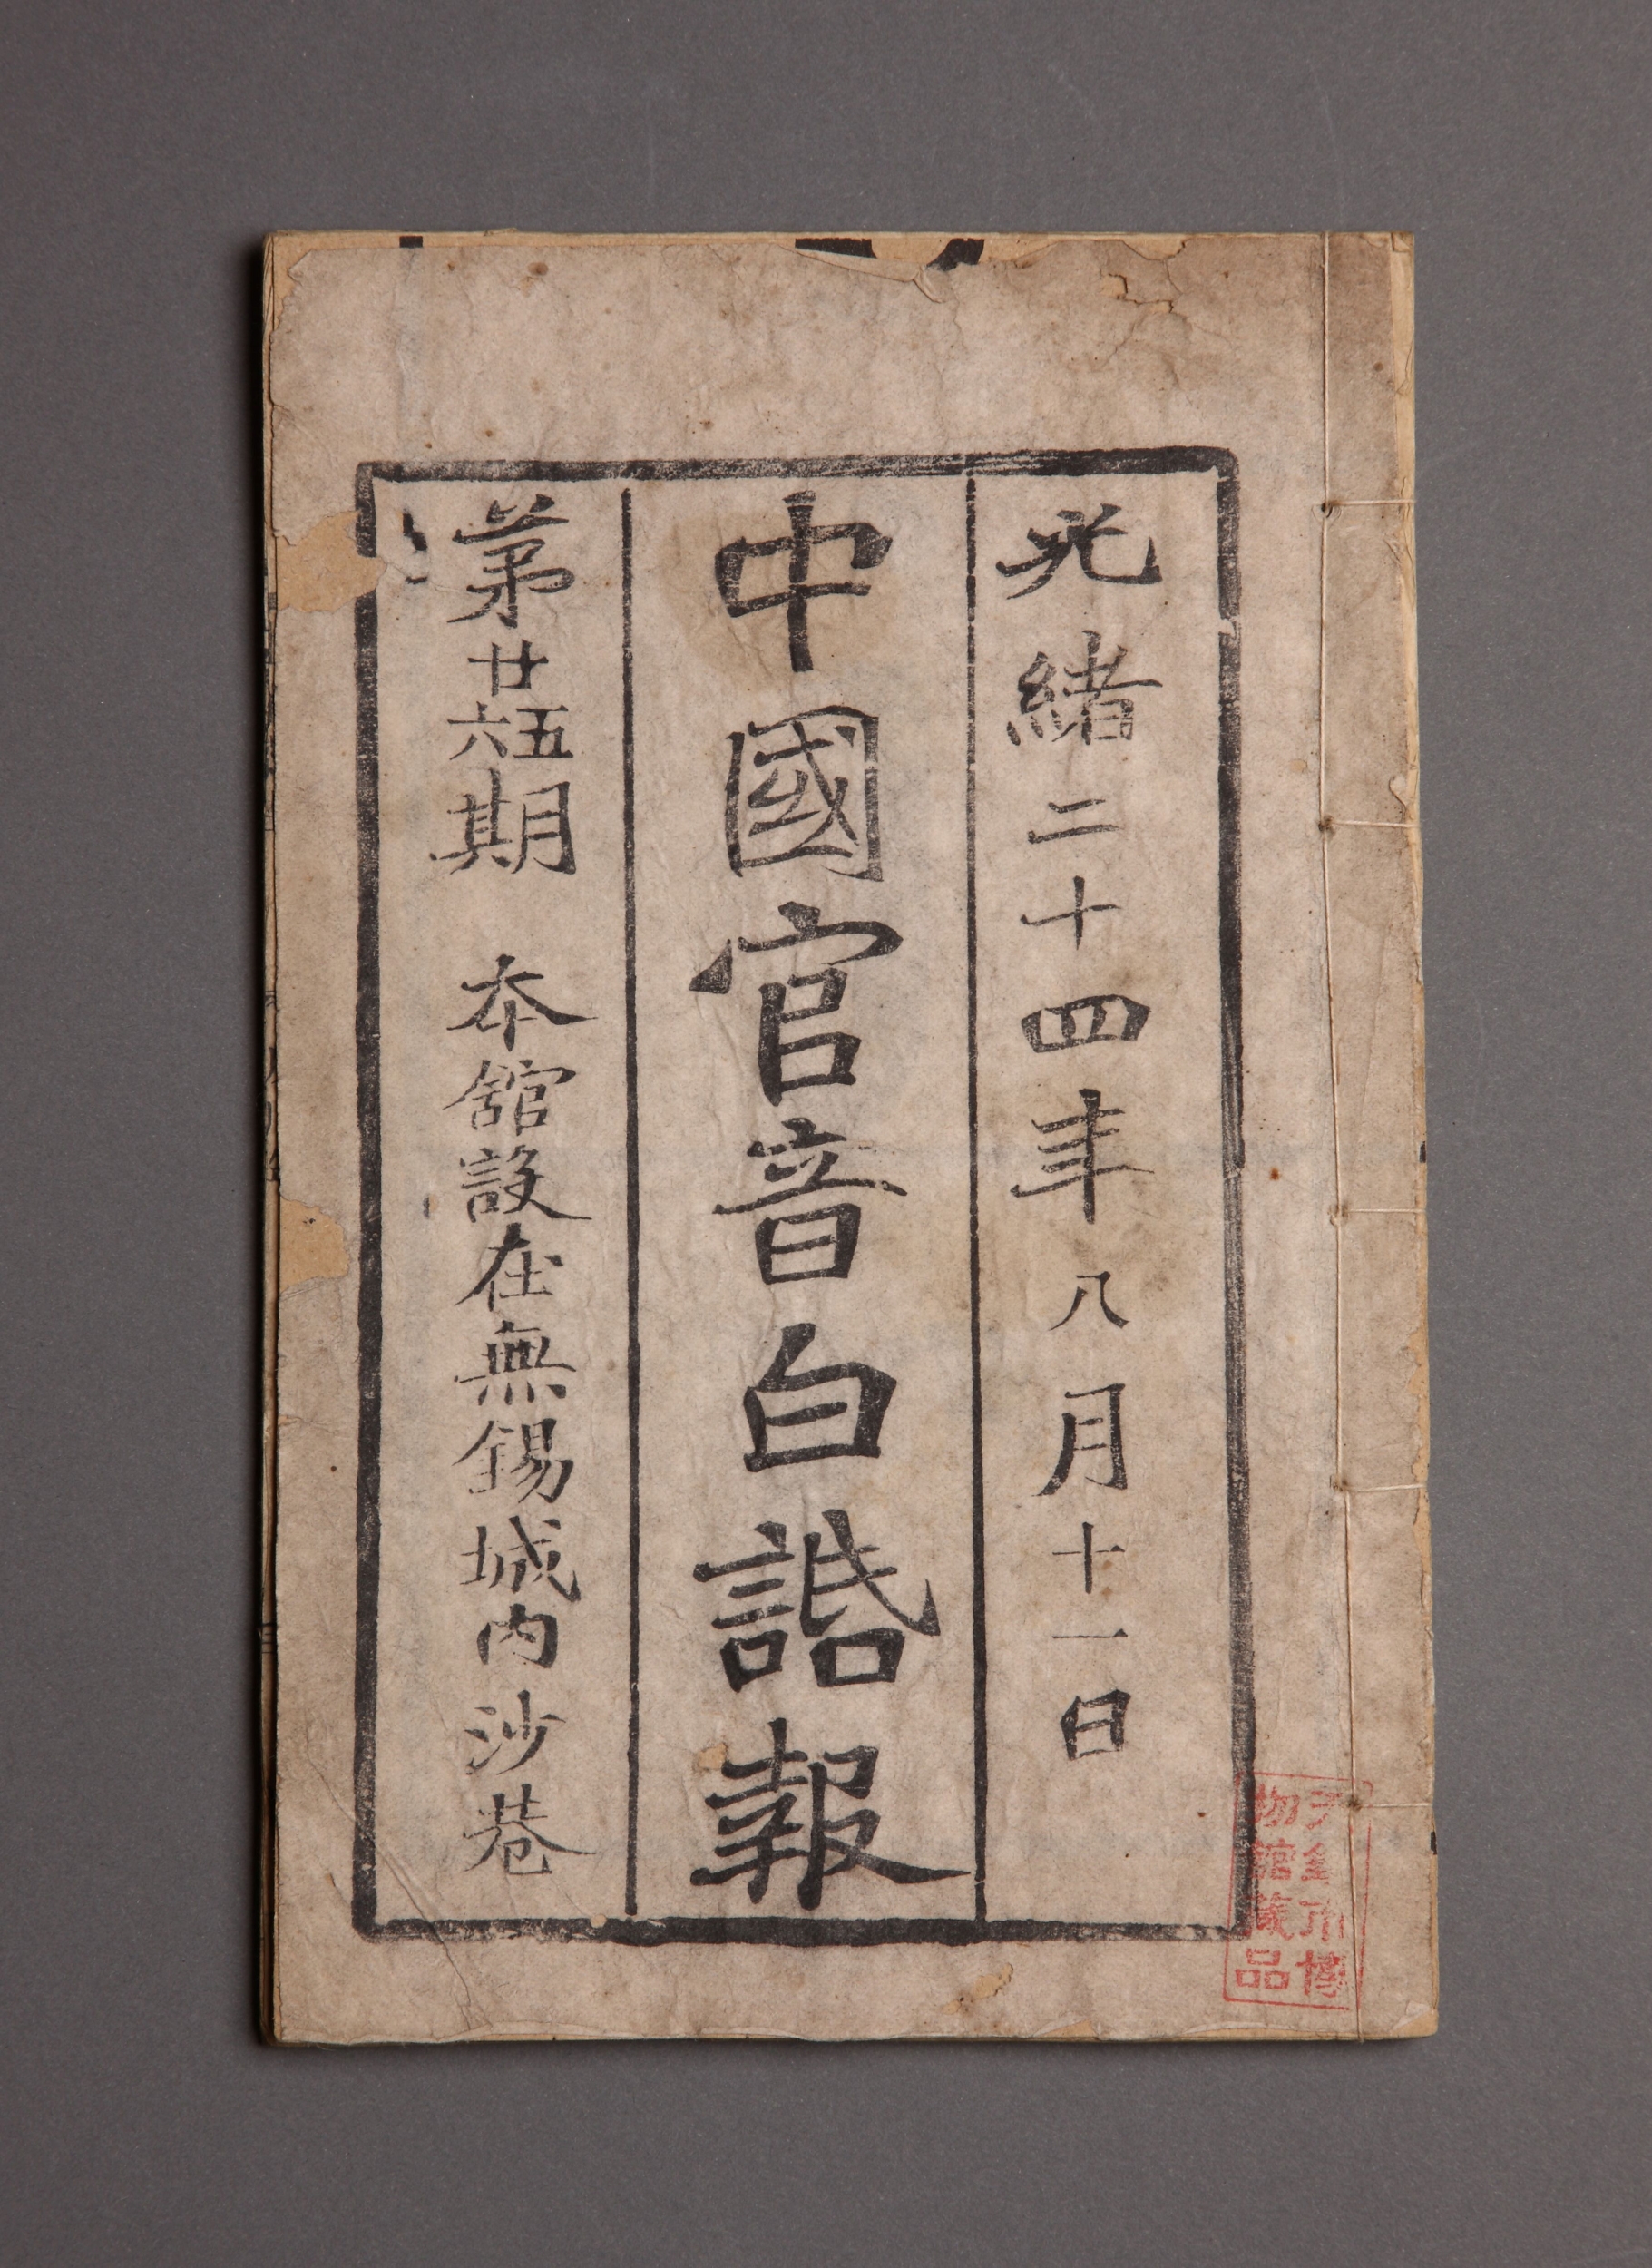 光緒二十四年八月十一日
中國官音白話報
第廿五六期 本館設在無錫城內沙巷
無錫市博
物館藏品